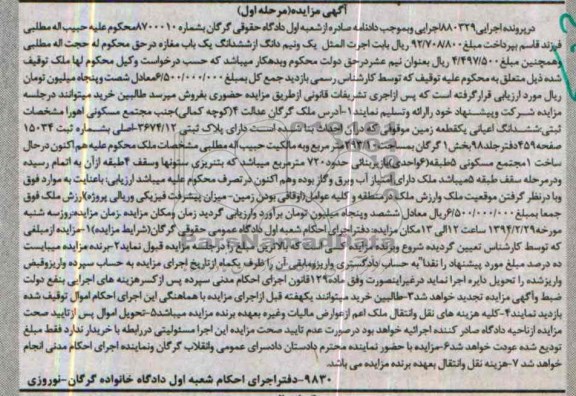 آگهی مزایده(مرحله اول)
درپرونده اجرایی۸۸۰۳۲۹اجرایی وبموجب دادنامه صادره ازشعبه اول دادگاه حقوقی گرگان بشماره۸۷۰۰۰۱۰محکوم علیه حبیب اله مطلبی
فرزند قاسم بپرداخت مبلغ۹۲/۷۰۸/۸۰۰ ریال بابت اجرت المثل یک ونیم دانگ ازششدانگ یک باب مغازه درحق محکوم له حجت اله مطلبی
وهمچنین مبلغ۴/۴۹۷/۵۰۰ ریال بعنوان نیم عشردرحق دولت محکوم وبدهکار میباشد که حسب درخواست وکیل محکوم لها ملک توقیف
شده ذیل متعلق به محکوم علیه توقیف که توسط کارشناس رسمی بازدید جمع کل بمبلغ۶/۵۰۰/۰۰۰/۰۰۰معادل شصت وپنجاه میلیون تومان
ریال مورد ارزیابی قرارگرفته است که پس ازاجری تشریفات قانونی ازطریق مزایده حضوری بفروش میرسد طالبین خرید میتوانند درجلسه
مزایده شرکت وپیشنهاد خود راارائه وتسلیم نمایند:۱-آدرس ملک گرگان عدالت۴(کوچه کمالی)جنب مجتمع مسکونی اهورا مشخصات
ثبتی:ششدانگ اعیانی یکقطعه زمین موقوفی که درآن احداث بنا شده است دارای پلاک ثبتی ۳۶۷۴/۱۲-اصلی بشماره ثبت ۱۵۰۳۴
صفحه۴۵۹دفترجلد۹۸بخش۱ گرگان بمساحت۲۹۳/۱۰مترمربع وبه مالکیت حبیب اله مطلبی مشخصات ملک محکوم علیه هم اکنون درحال
ساخت (مجتمع مسکونی ۵طبقه(۶واحدی)بازیربنائی حدود۷۲۰ مترمربع میباشد که بتنریزی ستونها وسقف ۴طبقه ازآن به اتمام رسیده
ودرمرحله سقف طبقه ۵میباشد ملک دارای امتیاز آب وبرق وگاز بوده وهم اکنون درتصرف محکوم علیه میباشد ارزیابی:باعنایت به موارد فوق
وبا درنظر گرفتن موقعیت ملک وارزش ملک درمنطقه و کلیه عوامل(اوقافی بودن زمین-میزان پیشرفت فیزیکی وریالی پروژه)ارزش ملک فوق
جمعا بمبلغ۶/۵۰۰/۰۰۰/۰۰۰ریال معادل ششصد وپنجاه میلیون تومان برآورد وارزیابی گردید زمان ومکان مزایده .زمان مزایده:روزسه شنبه
مورخه۱۳۹۴/۲/۲۹ ساعت ۱۲الی ۱۳مکان مزایده:دفتراجرای احکام شعبه اول دادگاه عمومی حقوقی گرگان(شرایط مزایده)۱-مزایده ازمبلغی
که توسط کارشناس تعیین گردیده شروع وبرنده مزایده کسی است که مال مورد مزایده قبول نماید۲-برنده مزایده میبایست
ده درصد مبلغ مورد پیشنهاد را نقدا به حساب دادگستری واریزومابقی آن را ظرف یکماه ازتاریخ اجرای مزایده به حساب سپرده واریزوفیض
واریزشده را تحویل دایره اجرا نماید درغیراینصورت وفق ماده۱۲۹قانون اجرای احکام مدنی سپرده پس ازکسرهزینه های اجرایی بنفع دولت
ضبط وآگهی مزایده تجدید خواهد شد۳-طالبین خرید میتوانند یکهفته قبل ازاجرای مزایده با هماهنگی این اجرای احکام اموال توقیف شده
بازدید نمایند۴-کلیه هزینه های نقل وانتقال ملک اعم ازعوارض مالیات وغیره بعهده برنده مزایده میباشد۵-تحویل اموال پس ازتایید صحت
مزایده ازناحیه دادگاه صادر کننده اجرائیه خواهد بود درصورت عدم تایید صحت مزایده این اجرا مسئولیتی دررابطه با خریدار ندارد فقط مبلغ
تودیع شده عودت خواهد شد۶-مزایده با حضور نماینده محترم دادستان دادسرای عمومی وانقلاب گرگان ونماینده اجرای احکام مدنی انجام
خواهد شد ۷-هزینه نقل وانتقال بعهده برنده مزایده می باشد.
۹۸۳۰-دفتراجرای احکام شعبه اول دادگاه خانواده گرگان-نوروزی